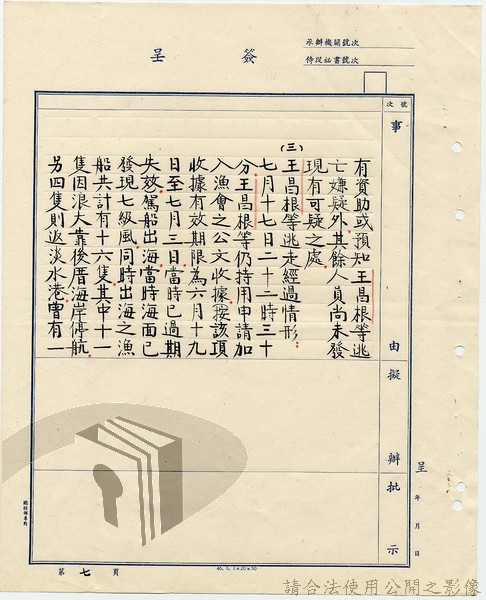 承辦機關號次
侍從祕書號次
簽
呈
號次
事
由
擬
辦
批
示
呈
年
月
日
有資助或預知王昌根等逃
亡嫌疑外其餘人員尚未發
現有可疑之處
(三)
王昌根等逃走經過情形
七月十七日二十二時三十
分王昌根等仍持用申請加
入漁會之公文收據按該項
收據有效期限為六月十九
日至七月三日當時已過期
失效駕船出海當時海面已
發現七級風同時出海之漁
船共計有十六隻其中十一
隻因浪大靠後厝海岸停航
另四隻則返淡水港曾有一
第七頁
46. 5. 1×20×50
請合法使用公開之影像